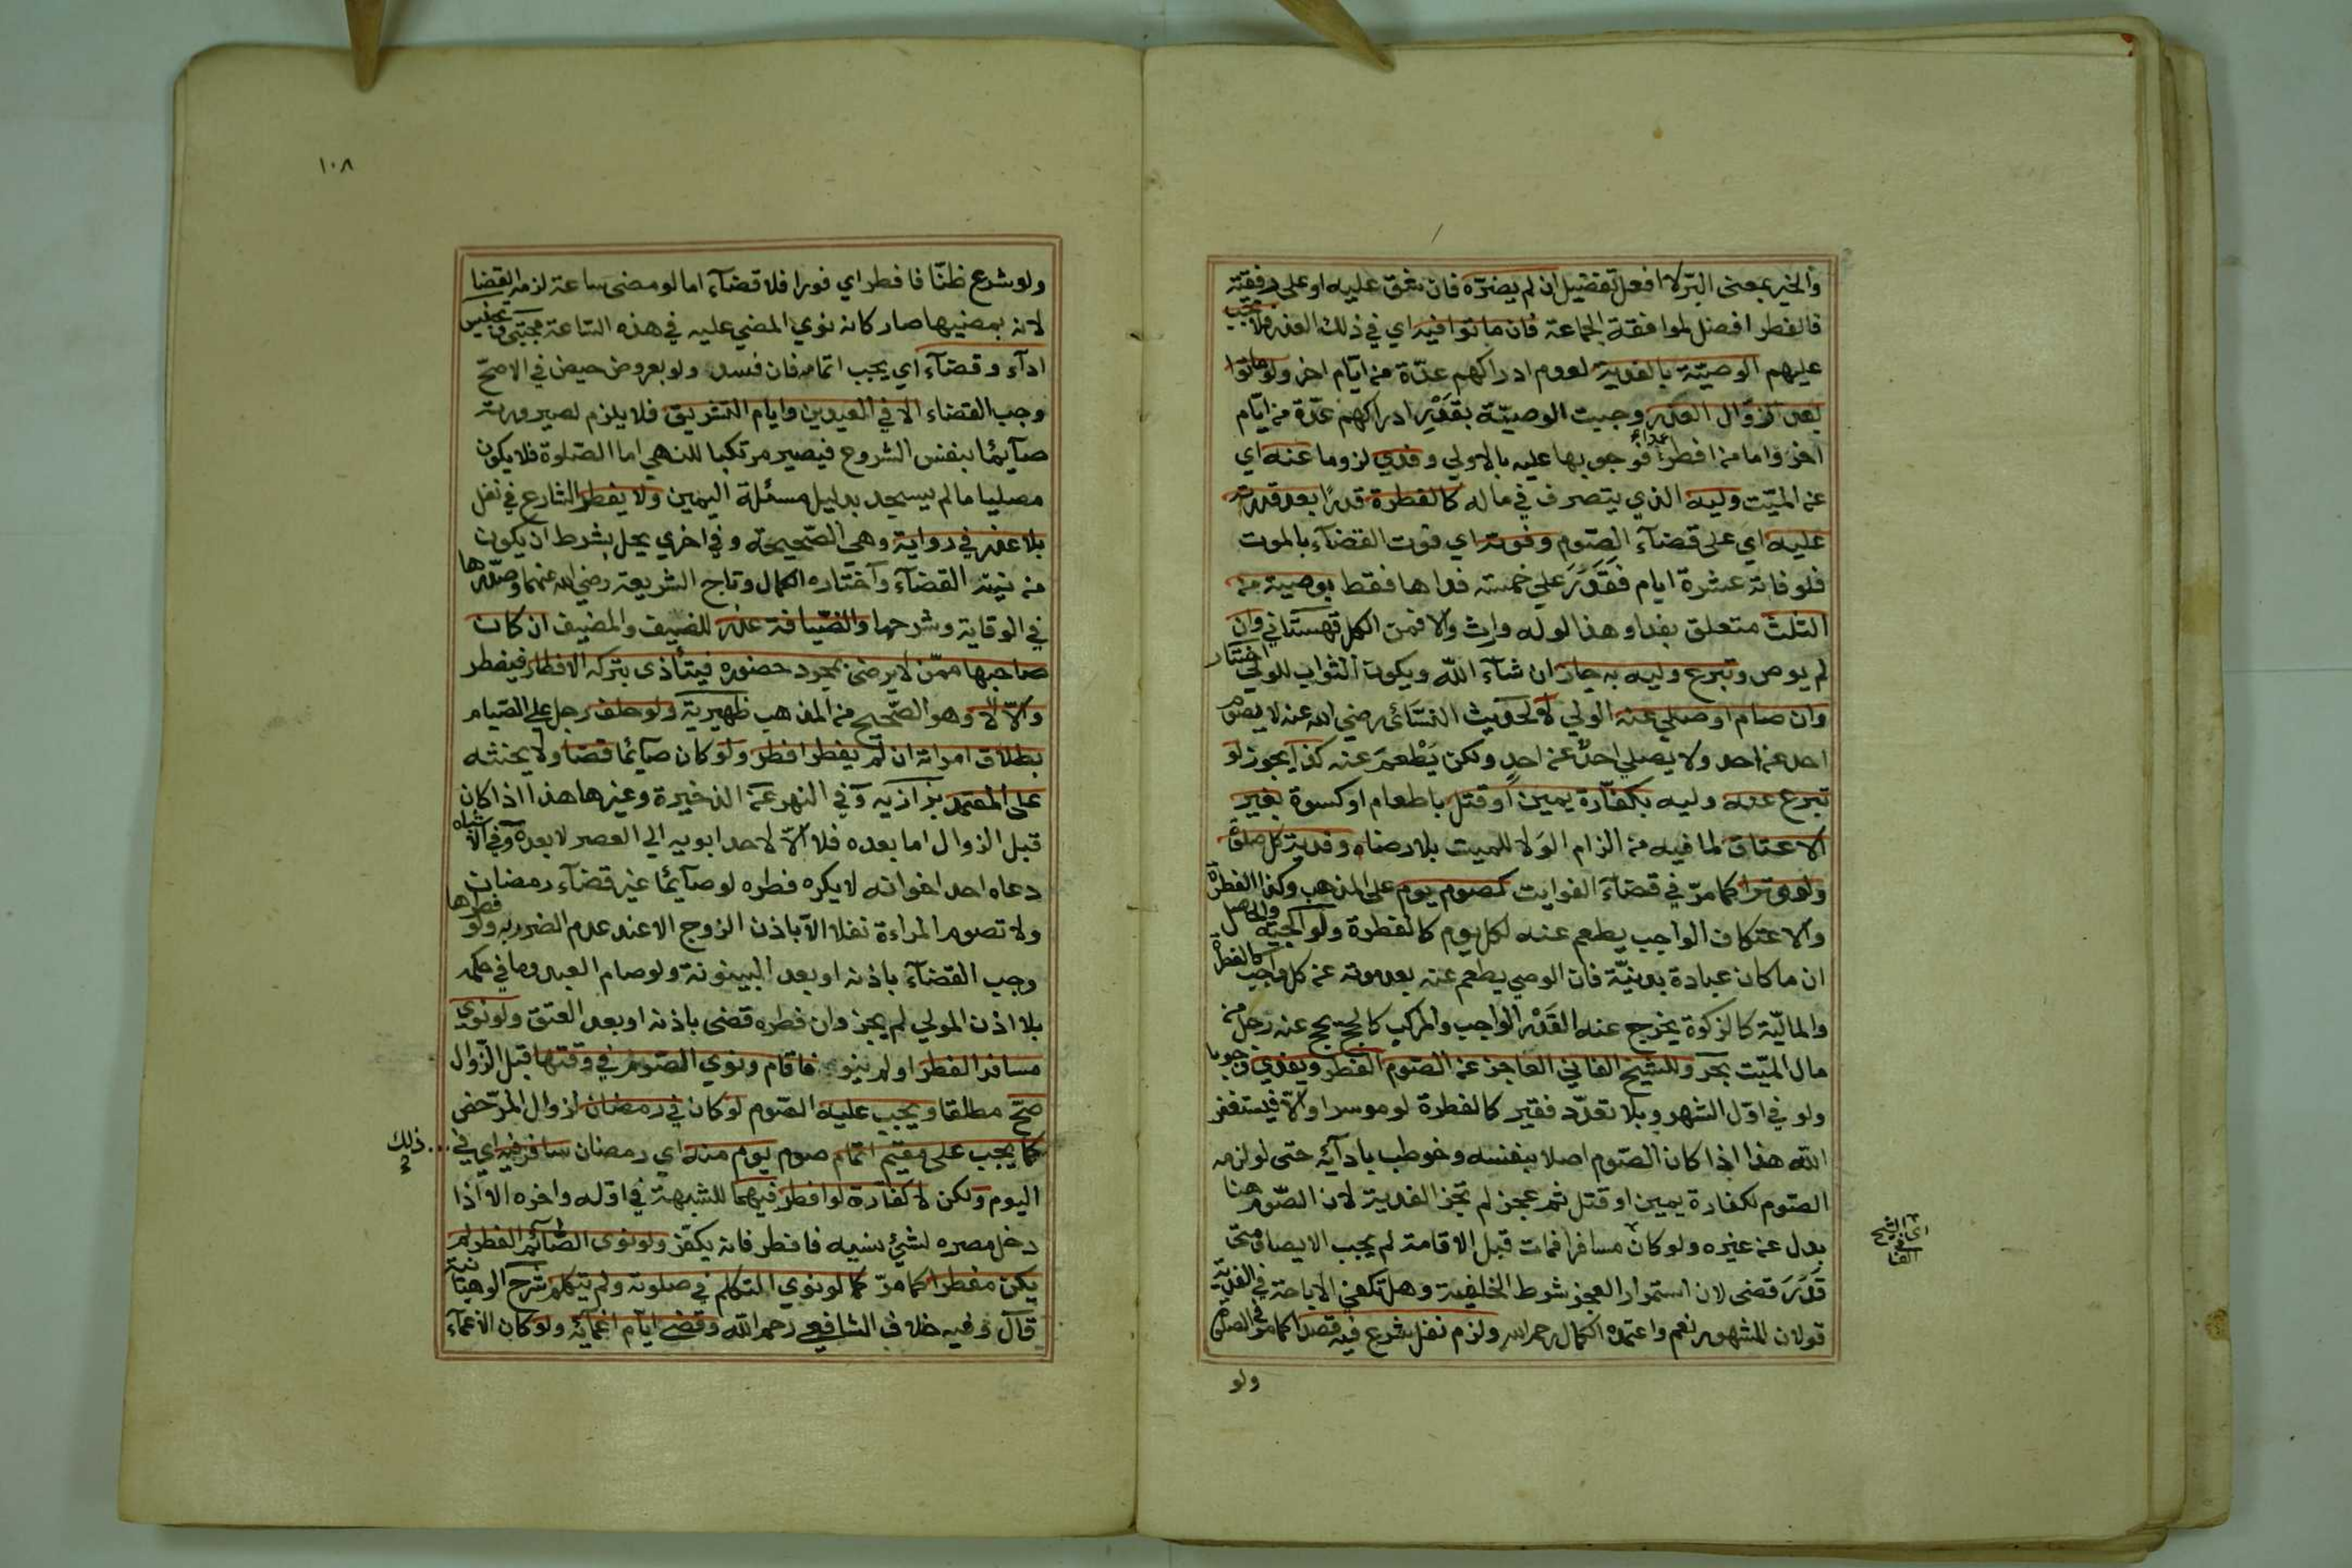 والخير بمعنى البر لا افعل تفضيل ان لم يضره فان شق عليه او على رفقته
فالفطر افضل لموافقة الجماعة فان ماتوا فيه اي في ذلك العذر فلا يجب
عليهم الوصية بالفدية لعدم ادراكهم عدة من ايام اخر ولو ماتوا
بعد زوال العذر وجبت الوصية بقدر ادراكهم عدة من ايام
اخر واما من افطر عمدا فوجوبها عليه بالاولي وفدي لزوما عنه اي
عن الميت وليه الذي يتصرف في ماله كالفطرة قدرا بعد قدرته
عليه اي على قضآء الصوم وفوته اي فوت القضآء بالموت
فلو فاته عشرة ايام فقدر علي خمسة فداها فقط بوصيته من
الثلث متعلق بفدا وهذا لو له وارث والا فمن الكل قهستاني وان
لم يوص وتبرع وليه به جاز ان شآء الله ويكون الثواب للولي اختيار
وان صام او صلي عنه الولي لا لحديث النسائي رضي الله عنه لا يصوم
احد عن احد ولا يصلي احد عن احد ولكن يطعم عنه كذا يجوز لو
تبرع عنه وليه بكفارة يمين او قتل باطعام او كسوة بغير
الاعتاق لما فيه من الزام الولا للميت بلا رضاه وفدية كل صلوة
ولو وترا كما مر في قضآء الفوايت كصوم يوم على المذهب وكذا الفطرة
والاعتكاف الواجب يطعم عنه لكل يوم كالفطرة ولوالجية والحاصل
ان ما كان عبادة بدنية فان الوصي يطعم عنه بعد موته عن كل واجب كالفطرة
والمالية كالزكوة يخرج عنه القدر الواجب والمركب كالحج يحج عنه رجل من
مال الميت بحر وللشيخ الفاني العاجز عن الصوم الفطر ويفدي وجوبا
ولو في اول الشهر وبلا تعدد فقير كالفطرة لو موسرا والا فيستغفر
الله هذا اذا كان الصوم اصلا بنفسه وخوطب بادآئه حتى لو لزمه
الصوم لكفارة يمين او قتل ثم عجز لم تجز الفدية لان الصوم هنا
بدل عن غيره ولو كان مسافرا فمات قبل الاقامة لم يجب الايصا ومتى
اي الشيخ الفا
قدر قضى لان استمرار العجز شرط الخلفية وهل تكفي الاباحة في الفدية
قولان المشهور نعم واعتمده الكمال رحمه الله ولزم نفل شرع فيه قصدا كما مر في الصلوة
ولو
١٠٨
ولو شرع ظنا فافطر اي فورا فلا قضآء اما لو مضى ساعة لزمه القضا
لانه بمضيها صار كانه نوي المضي عليه في هذه الساعة مجتبى وتجنيس
ادآء وقضآء اي يجب اتمامه فان فسد ولو بعروض حيض في الاصح
وجب القضاء الا في العيدين وايام التشريق فلا يلزم لصيرورته
صآئما بنفس الشروع فيصير مرتكبا للنهي اما الصلوة فلا يكون
مصليا ما لم يسجد بدليل مسئلة اليمين ولا يفطر الشارع في نفل
بلا عذر في رواية وهي الصحيحة وفي اخري يحل بشرط ان يكون
من نيته القضآء واختاره الكمال وتاج الشريعة رضي الله عنهما وصدرها
في الوقاية وشرحها والضيافة عذر للضيف والمضيف ان كان
صاحبها ممن لا يرضى بمجرد حضوره فيتأذى بتركه الافطار فيفطر
والا لا وهو الصحيح من المذهب ظهيرية ولو حلف رجل علي الصيام
بطلاق امراته ان لم يفطر افطر ولو كان صآئما قضا ولا يحنثه
على المعتمد بزازيه وفي النهر عن الذخيرة وغيرها هذا اذا كان
قبل الزوال اما بعده فلا الا لاحد ابويه الي العصر لا بعده وفي الاشباه
دعاه احد اخوانه لا يكره فطره لو صآئما غير قضآء رمضان
ولا تصوم المراءة نفلا الا باذن الزوج الا عند عدم الضرر به ولو فطرها
وجب القضآء باذنه او بعد البينونة ولو صام العبد وما في حكمه
بلا اذن المولي لم يجز وان فطره قضى باذنه او بعد العتق ولو نوى
مسافر الفطر او لم ينو فاقام ونوي الصوم في وقتها قبل الزوال
صح مطلقا ويجب عليه الصوم لو كان في رمضان لزوال المرخص
كما يجب على مقيم اتمام صوم يوم منه اي رمضان سافر فيه اي في ... ذلك
اليوم ولكن لا كفارة لو افطر فيهما للشبهة في اوله واخره الا اذا
دخل مصره لشيئ نسيه فافطر فانه يكفر ولو نوى الصآئم الفطر لم
يكن مفطرا كما مر كما لو نوي التكلم في صلوته ولم يتكلم شرح الوهبانية
قال وفيه خلاف الشافعي رحمه الله وقضي ايام اغمآئه ولو كان الاغمآء